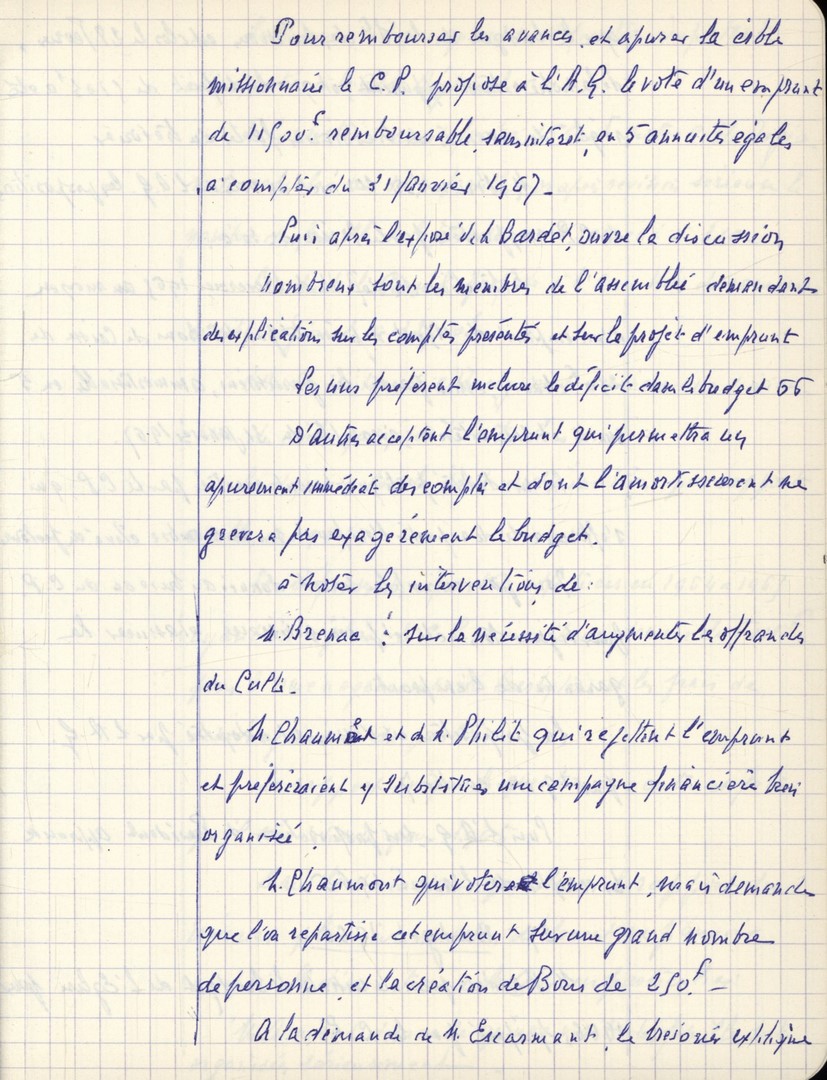 Pour rembourser les avances, et apurer la cible
missionnaire le C.P. propose à l'A.G. le vote d'un emprunt
de 11500.F remboursable, sans intérêt, en 5 annuités égales
à compter du 31 Janvier 1967.
Puis après l'exposé de M. Bardet, ouvre la discussion
Nombreux sont les membres de l'assemblée demandant
des explications sur les comptes présentés et sur le projet d'emprunt
Les uns préfèrent inclure le déficit dans le budget 66
D'autres acceptent l'emprunt qui permettra un
apurement immédiat des comptes et dont l'amortissement ne
grevera pas exagérément le budget.
à noter les interventions de :
M. Brenac : sur la nécessité d'augmenter les offrandes
du Culte.
M. Chaumet et de M. Philit qui rejettent l'emprunt
et préfèreraient y substituer une campagne financière bien
organisée.
M. Chaumont qui votera l'emprunt, mais demande
que l'on repartisse cet emprunt sur une grand nombre
de personne, et la création de Bons de 250.F –
A la demande de M. Escarmant, le trésorier explique